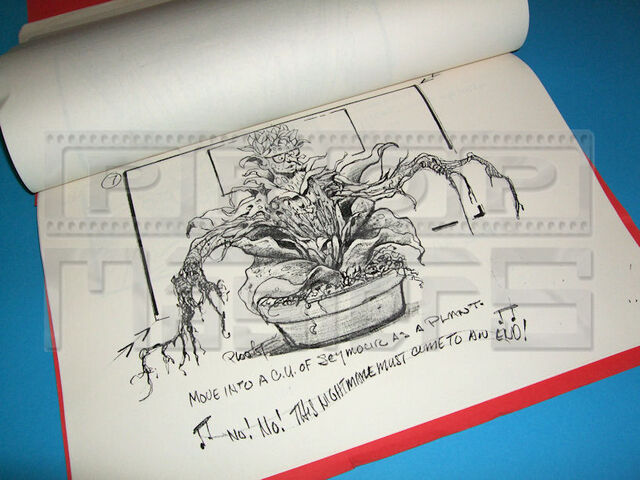 1
PROP
MOVE INTO A C.U. OF SEYMOUR AS A PLANT.
NO! NO! THIS NIGHTMARE MUST COME TO AN END!